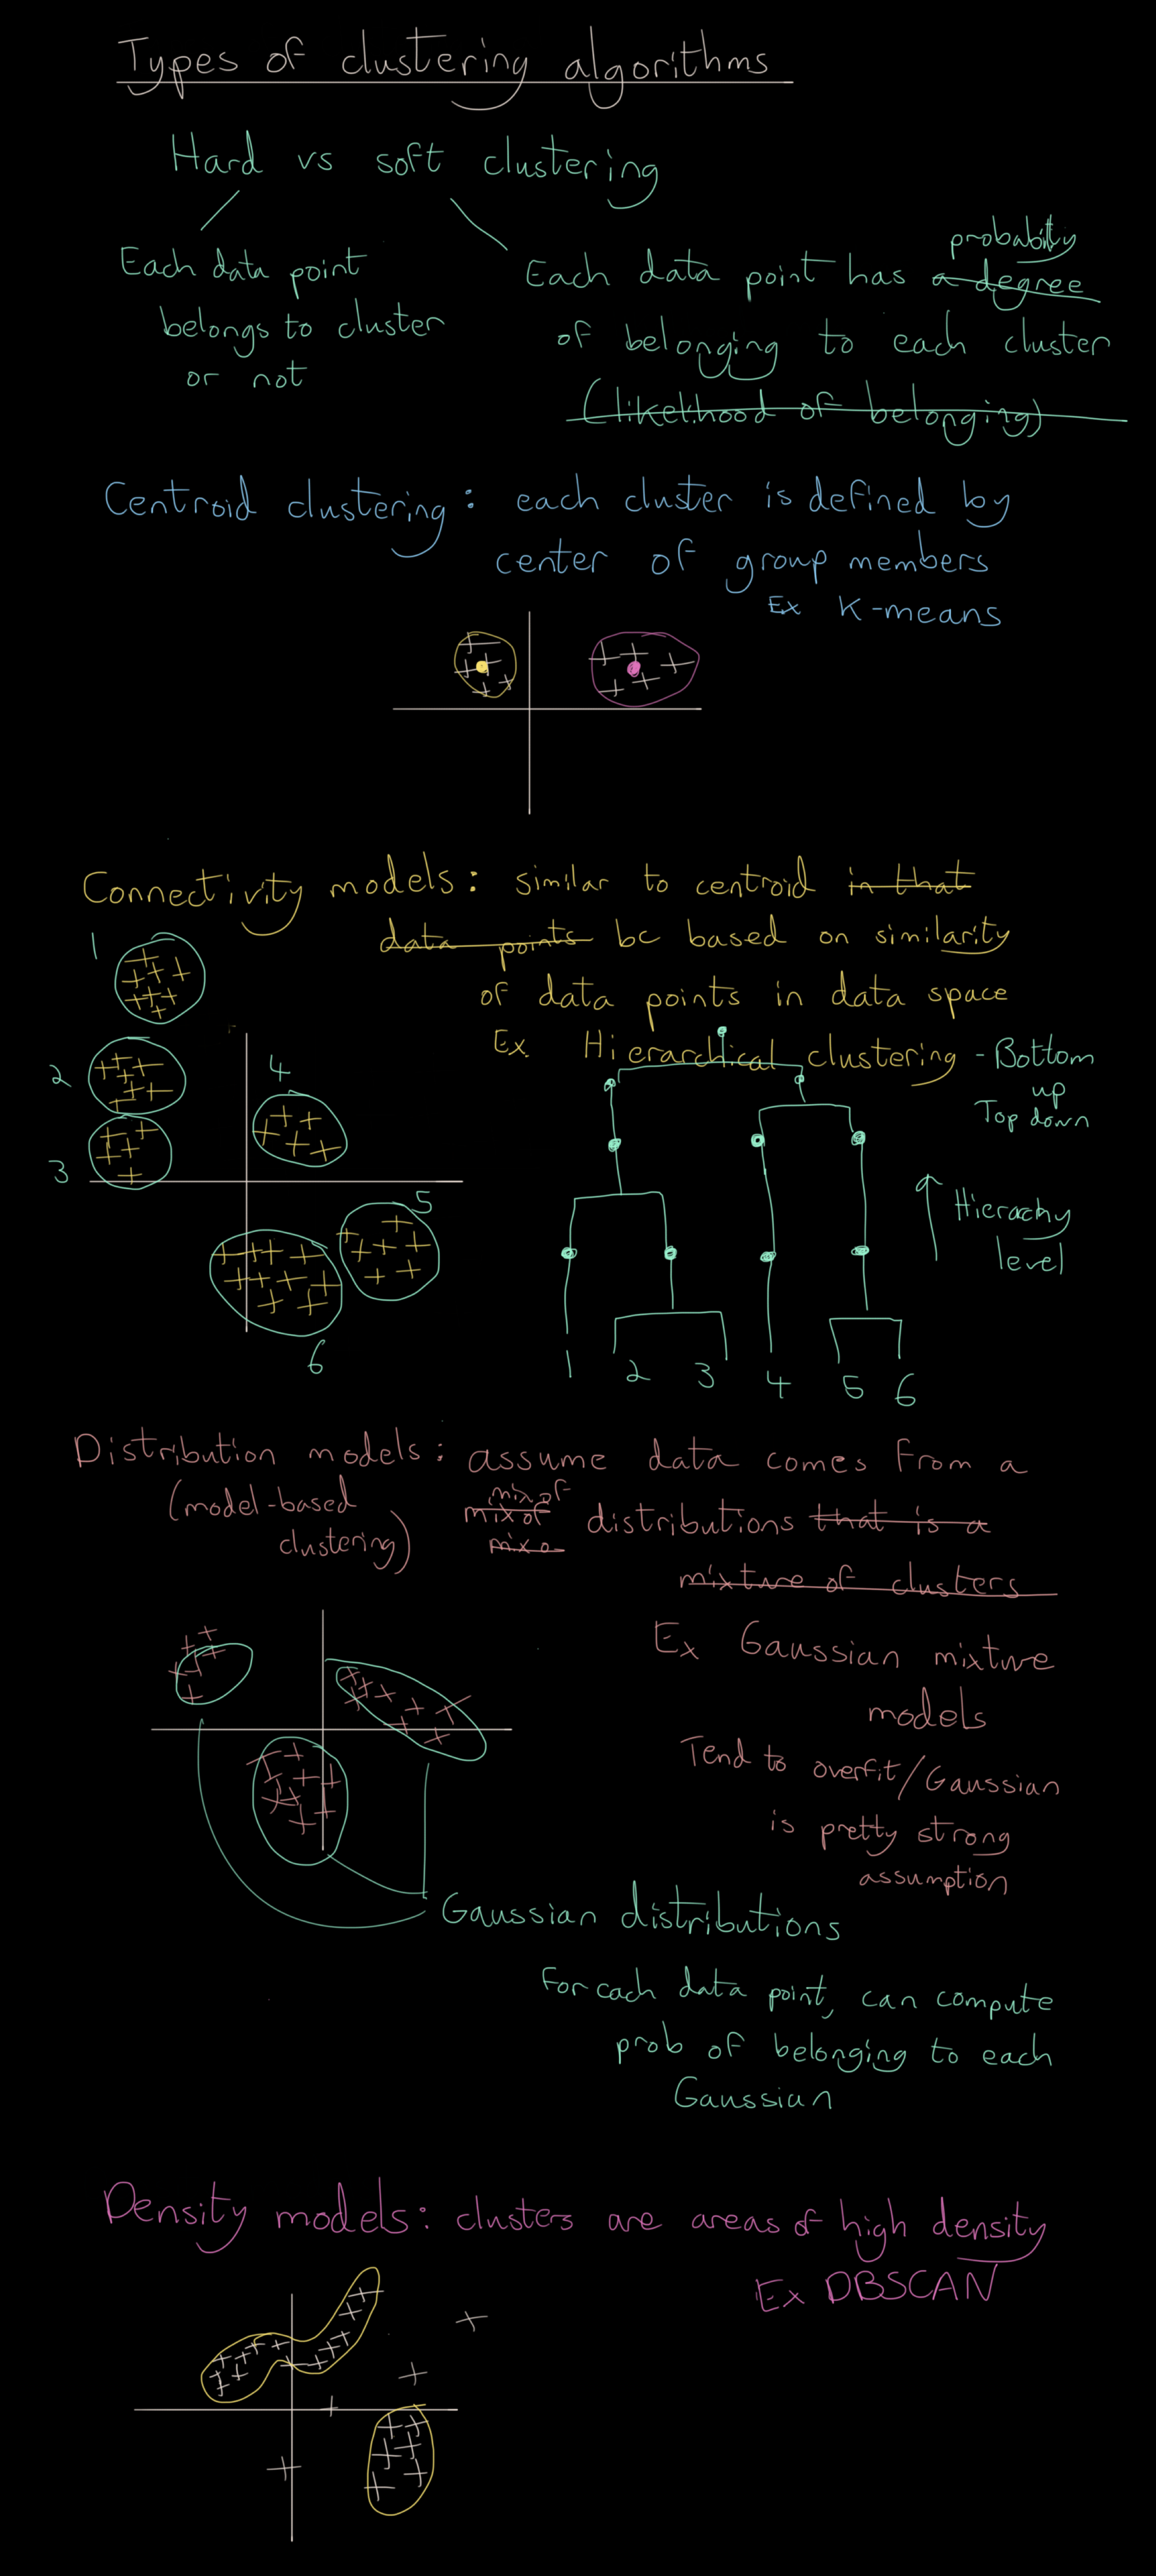 Types of clustering algorithms
Hard vs soft clustering
Each data point
belongs to cluster
or not
probability
Each data point has a degree
of belonging to each cluster
(likelihood of belonging)
Centroid clustering: each cluster is defined by
center of group members
Ex K-means
Connectivity models: similar to centroid in that
data points bc based on similarity
of data points in data space
Ex Hierarchical clustering - Bottom
up
Top down
1
2
3
4
5
6
Hierachy
level
1 2 3 4 5 6
Distribution models: assume data comes from a
(model-based
clustering)
mix of
mix of distributions that is a
mix o
mixture of clusters
Ex Gaussian mixture
models
Tend to overfit/Gaussian
is pretty strong
assumption
Gaussian distributions
For each data point, can compute
prob of belonging to each
Gaussian
Density models: clusters are areas of high density
Ex DBSCAN